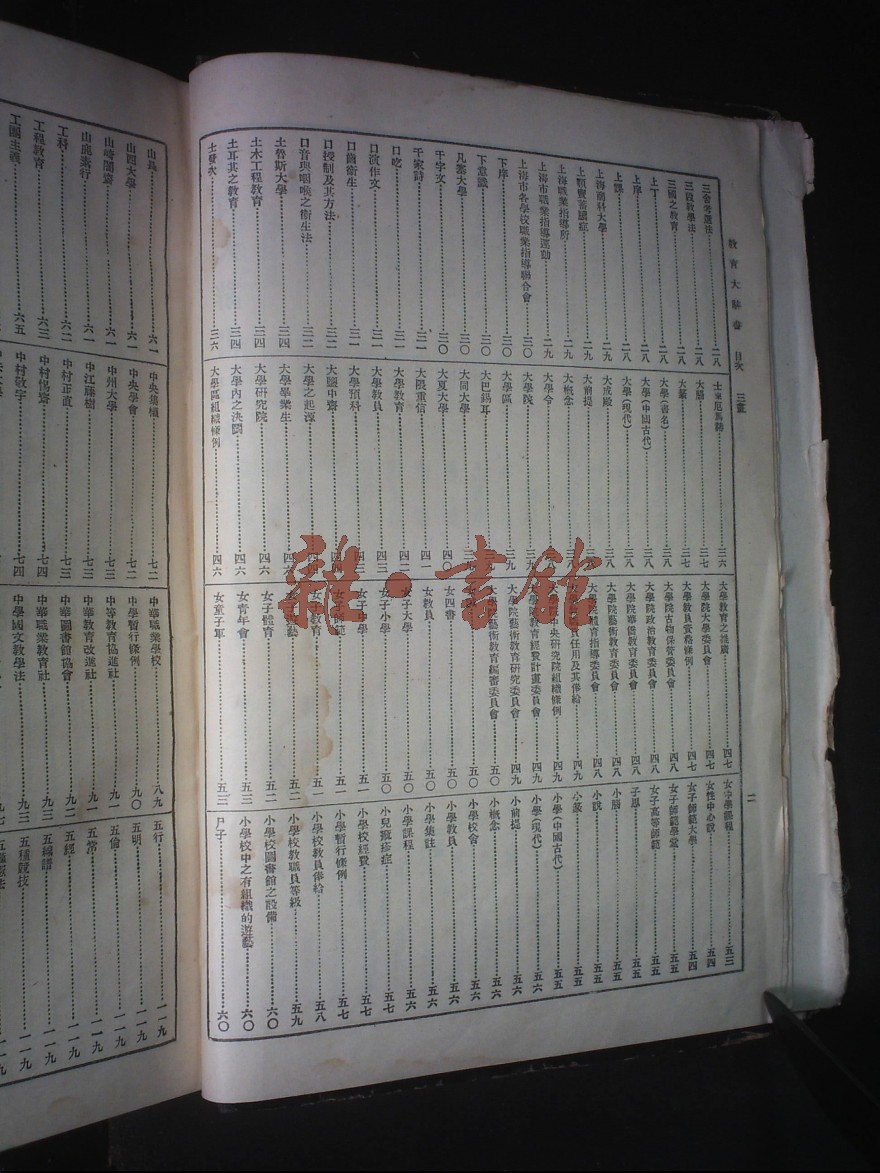 教育大辭書 目次 三畫
二
三舍考選法……二八
三段教學法……二八
三國之教育……二八
上丁……二八
上庠……二八
上課……二九
上海商科大學……二九
上顎竇蓄膿症……二九
上海職業指導所……二九
上海市職業指導運動……二九
上海市各學校職業指導聯合會……三〇
下庠……三〇
下意識……三〇
凡塞大學……三〇
千字文……三一
千家詩……三一
口吃……三一
口演作文……三一
口齒衛生……三一
口授制及其方法……三二
口音與咽喉之衛生法……三二
土魯斯大學……三四
土木工程教育……三四
土耳其之教育……三四
土發次……三六
士來厄馬赫……三六
大腦……三七
大篆……三七
大學(書名)……三八
大學(中國古代)……三八
大學(現代)……三八
大成殿……三八
大前提……三八
大概念……三八
大學令……三九
大學院……三九
大學區……三九
大巴錫耳……三九
大同大學……三九
大夏大學……四〇
大隈重信……四一
大學教育……四二
大學教員……四三
大學預科……四四
大鹽中齋……四四
大學之起源……四四
大學畢業生……四六
大學研究院……四六
大學內之決鬭……四六
大學區組織條例……四六
大學教育之推廣……四七
大學院大學委員會……四七
大學教員資格條例……四七
大學院古物保管委員會……四八
大學院政治教育委員會……四八
大學院華僑教育委員會……四八
大學院藝術教育委員會……四八
大學院體育指導委員會……四八
大學教員任用及其俸給……四九
大學院中央研究院組織條例……四九
大學院教育經費計畫委員會……四九
大學院藝術教育研究委員會……四九
大學院藝術教育編審委員會……五〇
女四書……五〇
女教員……五〇
女子大學……五〇
女子小學……五〇
女子中學……五一
女子師範……五一
女子教育……五一
女子體育……五二
女青年會……五三
女童子軍……五三
女中學課程……五三
女性中心說……五四
女子師範大學……五四
女子師範學堂……五五
女子高等師範……五五
子思……五五
小腦……五五
小說……五五
小篆……五五
小學(中國古代)……五五
小學(現代)……五六
小前提……五六
小概念……五六
小學校會……五六
小學教員……五六
小學集註……五六
小學課程……五六
小兒癍疹症……五七
小學校經費……五七
小學暫行條例……五七
小學校教員俸給……五八
小學校教職員等級……五九
小學校圖書館之設備……六〇
小學校中之有組織的遊藝……六〇
尸子……六〇
山長……六一
山西大學……六一
山崎闇齋……六一
山鹿素行……六一
工科……六二
工程教育……六三
工團主義……六五
中央集權……七二
中央學會……七二
中州大學……七三
中江藤樹……七三
中村正直……七四
中村惕齋……七四
中村敬宇……七四
中華職業學校……八九
中學暫行條例……九〇
中等教育協進社……九一
中華教育改進社……九一
中華圖書館協會……九二
中華職業教育社……九三
中學國文教學法……九三
五行……一一九
五明……一一九
五倫……一一九
五常……一一九
五經……一一九
五線譜……一一九
五種競技……一一九
雜·書館